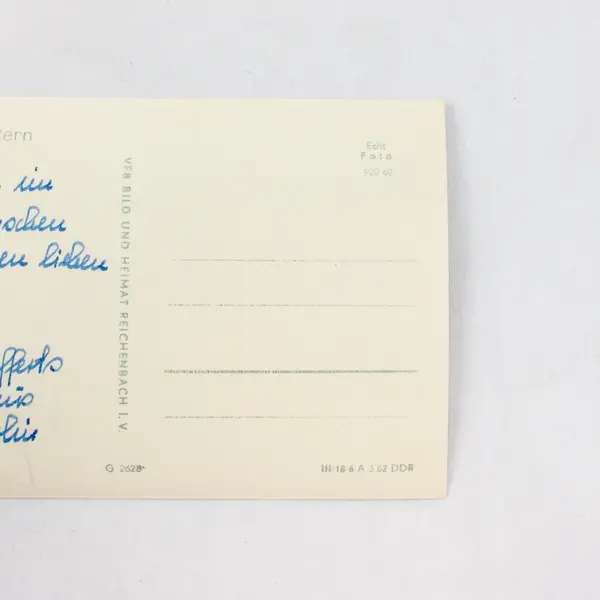 tern
im
ochen
en lieben
fferts
aus
lin
VEB BILD UND HEIMAT REICHENBACH I. V.
Echt
Foto
G 2628*
III/18-6 A 3 62 DDR